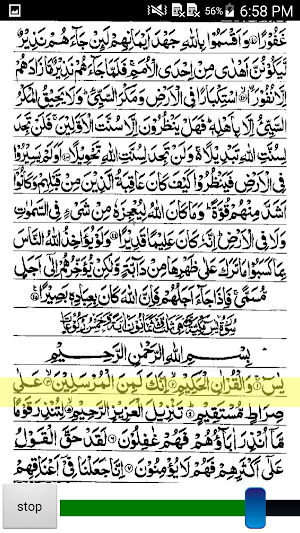 6:58 PM
56%
غَفُوْرًا ۝۴۱ وَاَقْسَمُوْا بِاللّٰهِ جَهْدَ اَيْمَانِهِمْ لَئِنْ جَآءَهُمْ نَذِيْرٌ
لَّيَكُوْنُنَّ اَهْدٰى مِنْ اِحْدَى الْاُمَمِ ۚ فَلَمَّا جَآءَهُمْ نَذِيْرٌ مَّا زَادَهُمْ
اِلَّا نُفُوْرًا ۝۴۲ اسْتِكْبَارًا فِى الْاَرْضِ وَمَكْرَ السَّيِّئِ ؕ وَلَا يَحِيْقُ الْمَكْرُ
السَّيِّئُ اِلَّا بِاَهْلِهٖ ؕ فَهَلْ يَنْظُرُوْنَ اِلَّا سُنَّتَ الْاَوَّلِيْنَ ۚ فَلَنْ تَجِدَ
لِسُنَّتِ اللّٰهِ تَبْدِيْلًا ۚ وَلَنْ تَجِدَ لِسُنَّتِ اللّٰهِ تَحْوِيْلًا ۝۴۳ اَوَلَمْ يَسِيْرُوْا
فِى الْاَرْضِ فَيَنْظُرُوْا كَيْفَ كَانَ عَاقِبَةُ الَّذِيْنَ مِنْ قَبْلِهِمْ وَكَانُوْٓا
اَشَدَّ مِنْهُمْ قُوَّةً ؕ وَمَا كَانَ اللّٰهُ لِيُعْجِزَهٗ مِنْ شَىْءٍ فِى السَّمٰوٰتِ
وَلَا فِى الْاَرْضِ ؕ اِنَّهٗ كَانَ عَلِيْمًا قَدِيْرًا ۝۴۴ وَلَوْ يُؤَاخِذُ اللّٰهُ النَّاسَ
بِمَا كَسَبُوْا مَا تَرَكَ عَلٰى ظَهْرِهَا مِنْ دَآبَّةٍ وَّلٰكِنْ يُّؤَخِّرُهُمْ اِلٰٓى اَجَلٍ
مُّسَمًّى ۚ فَاِذَا جَآءَ اَجَلُهُمْ فَاِنَّ اللّٰهَ كَانَ بِعِبَادِهٖ بَصِيْرًا ۝۴۵
بِسْمِ اللّٰهِ الرَّحْمٰنِ الرَّحِيْمِ
يٰسٓ ۝۱ وَالْقُرْاٰنِ الْحَكِيْمِ ۝۲ اِنَّكَ لَمِنَ الْمُرْسَلِيْنَ ۝۳ عَلٰى
صِرَاطٍ مُّسْتَقِيْمٍ ۝۴ تَنْزِيْلَ الْعَزِيْزِ الرَّحِيْمِ ۝۵ لِتُنْذِرَ قَوْمًا
مَّآ اُنْذِرَ اٰبَآؤُهُمْ فَهُمْ غٰفِلُوْنَ ۝۶ لَقَدْ حَقَّ الْقَوْلُ
عَلٰٓى اَكْثَرِهِمْ فَهُمْ لَا يُؤْمِنُوْنَ ۝۷ اِنَّا جَعَلْنَا فِىْٓ اَعْنَاقِهِمْ
stop